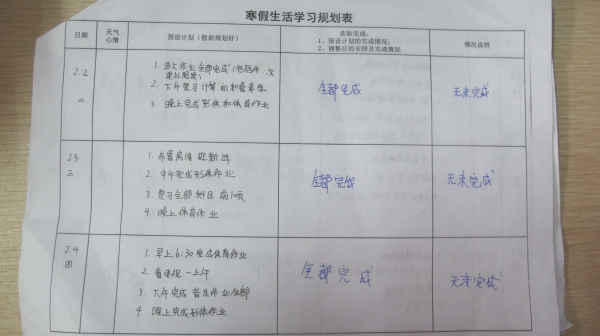 寒假生活学习规划表
日期
天气
心情
预设计划（假前规划好）
实际完成：
1、预设计划的完成情况；
2、调整后的安排及完成情况
情况说明
2.2
二
1. 语文作业全部完成（包括作文
课外阅读）
2. 下午复习计算机和
3. 晚上完成形体和体育作业
全部完成
无未完成
2.3
三
1. 布置房间 迎新年
2. 中午完成形体作业
3. 复习全部科目 前10页
4. 晚上体育作业
全部完成
无未完成
2.4
四
1. 早上6:30完成体育作业
2. 看电视一上午
3. 下午完成音乐作业全部
4. 晚上完成形体作业
全部完成
无未完成